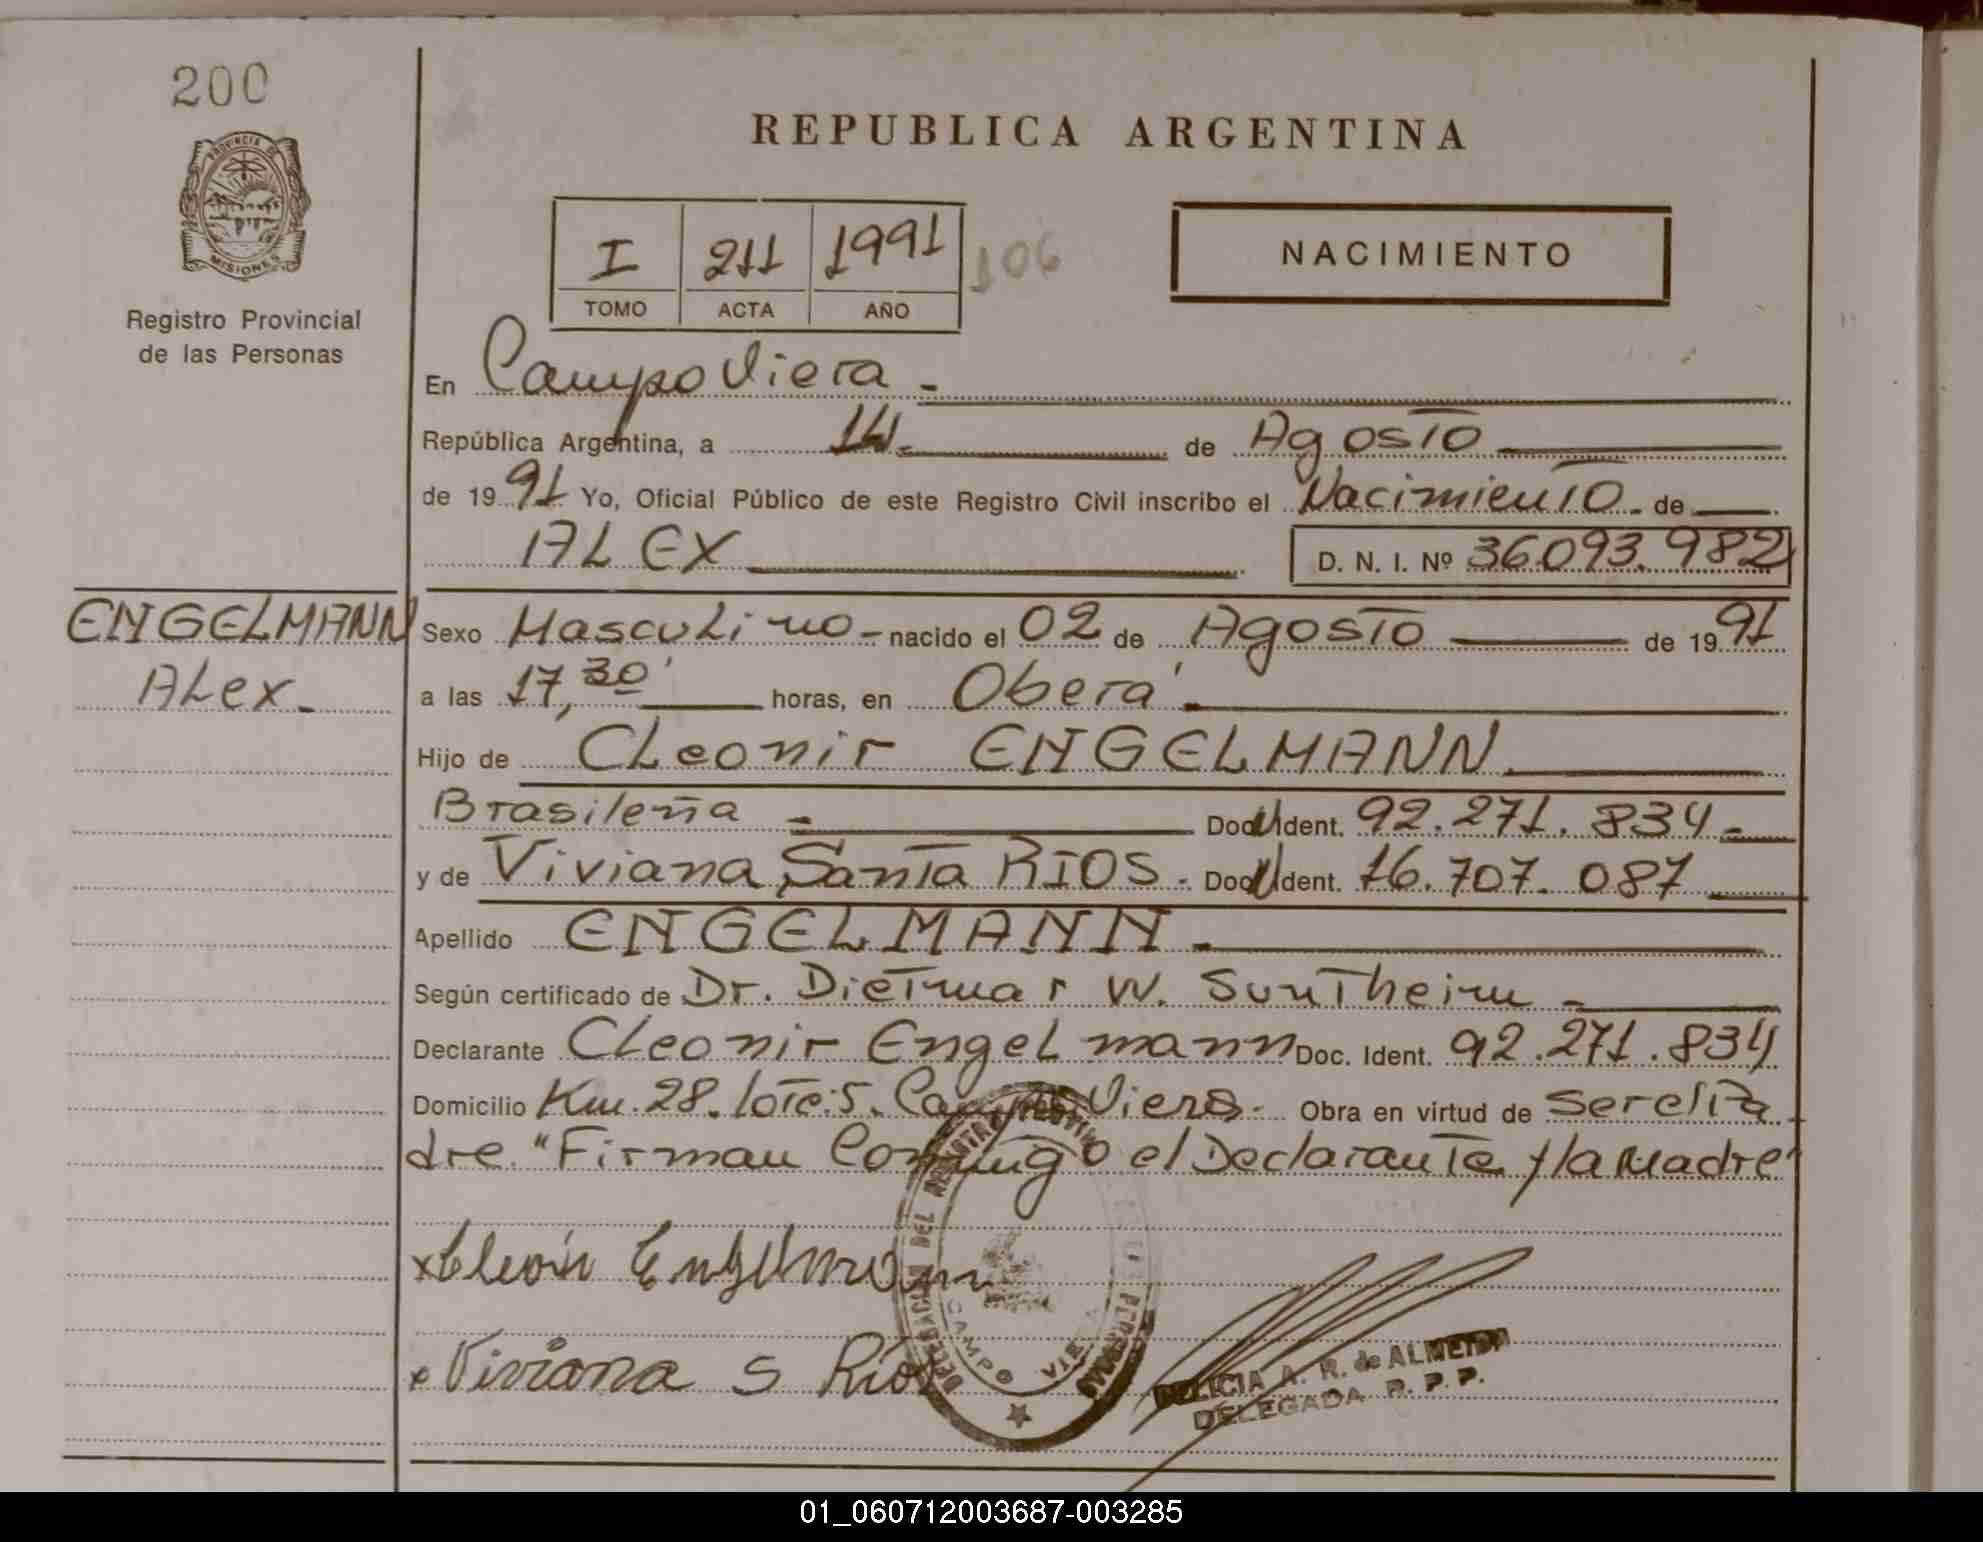 200
PROVINCIA DE
MISIONES
Registro Provincial
de las Personas
REPUBLICA ARGENTINA
I 211 1991 106
TOMO ACTA AÑO
NACIMIENTO
En Campo Viera -
República Argentina, a 14.- de Agosto
de 1991 Yo, Oficial Público de este Registro Civil inscribo el Nacimiento - de
ALEX D. N. I. Nº 36.093.982
ENGELMANN
Alex -
Sexo Masculino - nacido el 02 de Agosto de 1991
a las 17,30' horas, en Oberá -
Hijo de Cleonir ENGELMANN
Brasileña - Doc. Ident. 92.271.834 -
y de Viviana Santa RIOS - Doc. Ident. 16.707.087
Apellido ENGELMANN -
Según certificado de Dr. Dietmar W. Suntheim -
Declarante Cleonir Engelmann Doc. Ident. 92.271.834
Domicilio Km. 28. lote: 5. Campo Viera - Obra en virtud de ser el Pa-
dre. "Firman Conmigo el Declarante y la Madre"
x Cleonir Engelmann
x Viviana S Rios
DELEGACION DEL REGISTRO
CAMPO VIERA
DELICIA A. R. de ALMEIDA
DELEGADA R. P. P.
01_060712003687-003285